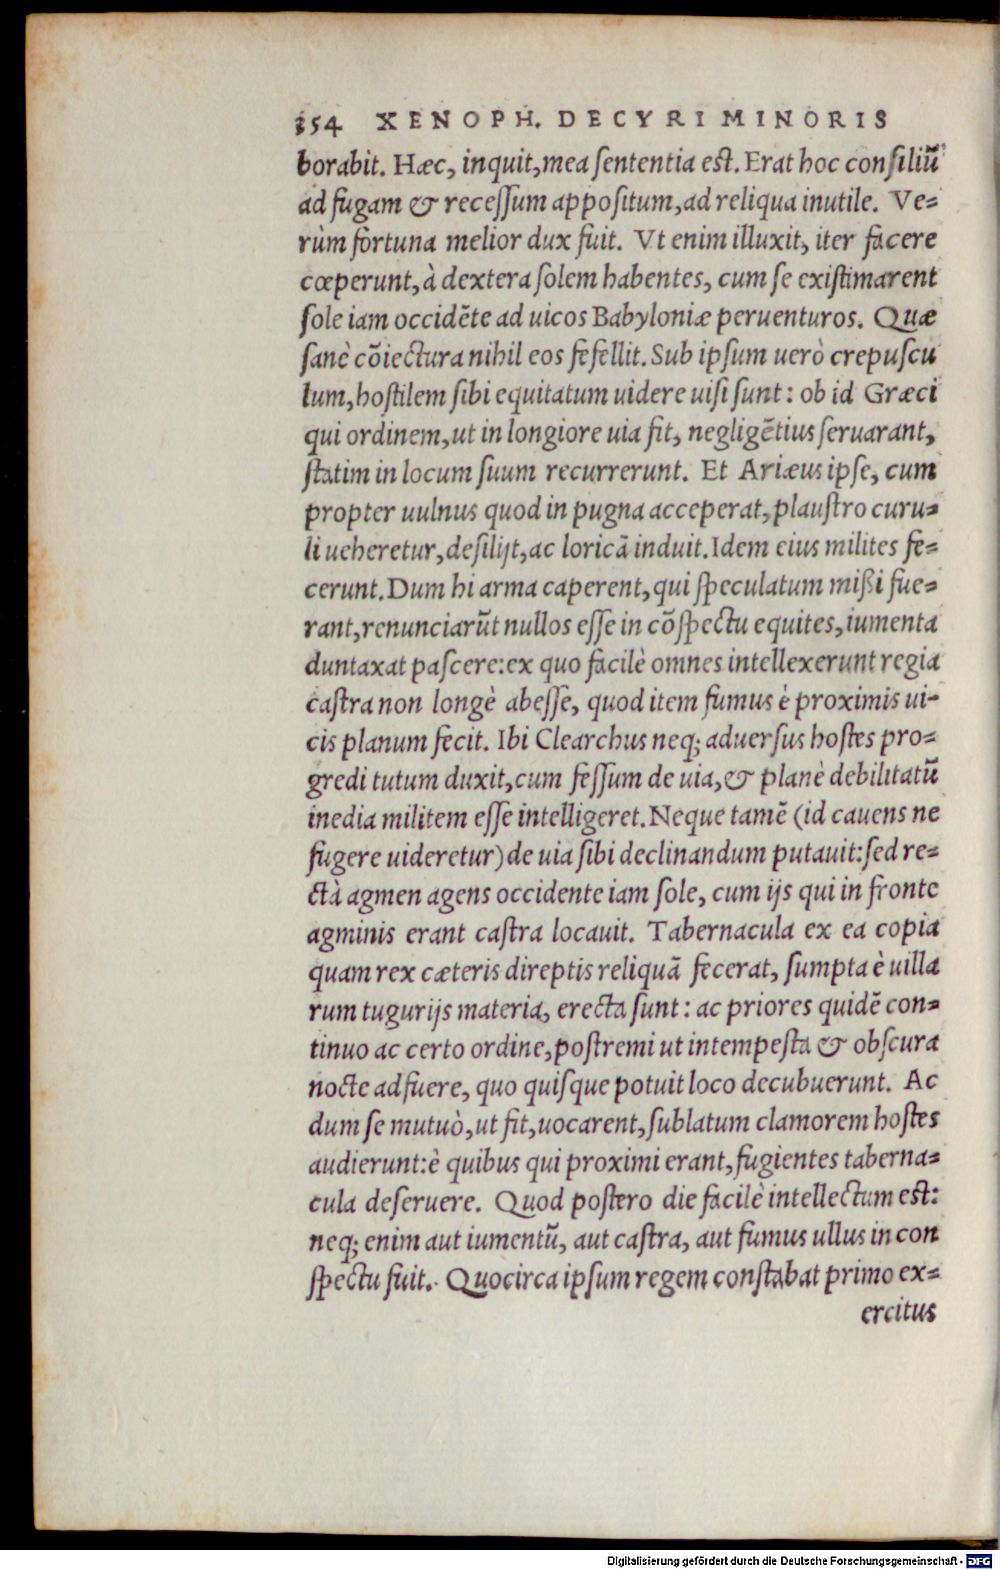 354 XENOPH. DE CYRI MINORIS
borabit. Hæc, inquit, mea sententia est. Erat hoc consiliũ
ad fugam & recessum appositum, ad reliqua inutile. Ve-
rùm fortuna melior dux fuit. Vt enim illuxit, iter facere
cœperunt, à dextera solem habentes, cum se existimarent
sole iam occidẽte ad uicos Babyloniæ peruenturos. Quæ
sanè cõiectura nihil eos fefellit. Sub ipsum uerò crepuscu
lum, hostilem sibi equitatum uidere uisi sunt: ob id Græci
qui ordinem, ut in longiore uia fit, negligẽtius seruarant,
statim in locum suum recurrerunt. Et Ariæus ipse, cum
propter uulnus quod in pugna acceperat, plaustro curu-
li ueheretur, desilijt, ac loricã induit. Idem eius milites fe-
cerunt. Dum hi arma caperent, qui speculatum mißi fue-
rant, renunciarũt nullos esse in cõspectu equites, iumenta
duntaxat pascere: ex quo facilè omnes intellexerunt regia
castra non longè abesse, quod item fumus è proximis ui-
cis planum fecit. Ibi Clearchus neq; aduersus hostes pro-
gredi tutum duxit, cum fessum de uia, & planè debilitatũ
inedia militem esse intelligeret. Neque tamẽ (id cauens ne
fugere uideretur) de uia sibi declinandum putauit: sed re-
ctà agmen agens occidente iam sole, cum ijs qui in fronte
agminis erant castra locauit. Tabernacula ex ea copia
quam rex cæteris direptis reliquã fecerat, sumpta è uilla
rum tugurijs materia, erecta sunt: ac priores quidẽ con-
tinuo ac certo ordine, postremi ut intempesta & obscura
nocte adfuere, quo quisque potuit loco decubuerunt. Ac
dum se mutuò, ut fit, uocarent, sublatum clamorem hostes
audierunt: è quibus qui proximi erant, fugientes taberna-
cula deseruere. Quod postero die facilè intellectum est:
neq; enim aut iumentũ, aut castra, aut fumus ullus in con
spectu fuit. Quocirca ipsum regem constabat primo ex-
ercitus
Digitalisierung gefördert durch die Deutsche Forschungsgemeinschaft - DFG